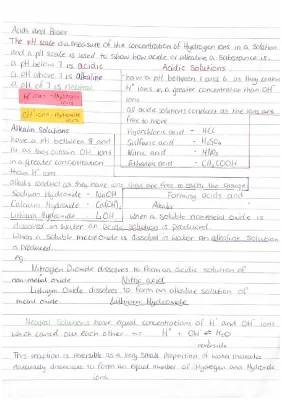 Acids and Bases
The pH scale is a measure of the concentration of Hydrogen ions in a solution
and a pH scale is used to show how acidic or alkaline a substance is.
a pH below 7 is acidic
a pH above 7 is alkaline
a pH of 7 is neutral
H+ ions - Hydrogen ions
OH- ions - Hydroxide ions
Acidic Solutions
have a pH between 1 and 6 as they contain
H+ ions in a greater concentration than OH-
ions
all acidic solutions conduct as the ions are
free to move
Hydrochloric acid - HCl
Sulfuric acid - H2SO4
Nitric acid - HNO3
Ethanoic acid - CH3COOH
Alkalin Solutions
have a pH between 8 and
14 as they contain OH- ions
in a greater concentration
than H+ ions
alkalis conduct as they have ions that are free to carry the charge
Sodium Hydroxide - NaOH
Calcium Hydroxide - Ca(OH)2
Lithium Hydroxide - LiOH
Forming acids and
Alkalis
when a soluble nonmetal oxide is
dissolved in water an acidic solution is produced
When a soluble metal oxide is dissolved in water an alkaline solution
is produced
Eg.
Nitrogen Dioxide dissolves to form an acidic solution of
non-metal oxide Nitric acid
Lithium Oxide dissolves to form an alkaline solution of
metal oxide Lithium Hydroxide
Neutral Solutions have equal concentrations of H+ and OH- ions
which cancel out each other → H+ + OH- ⇌ H2O
reversible
This reaction is reversible as a very small proportion of water molecules
dissociate to form an equal number of Hydrogen and Hydroxide
ions